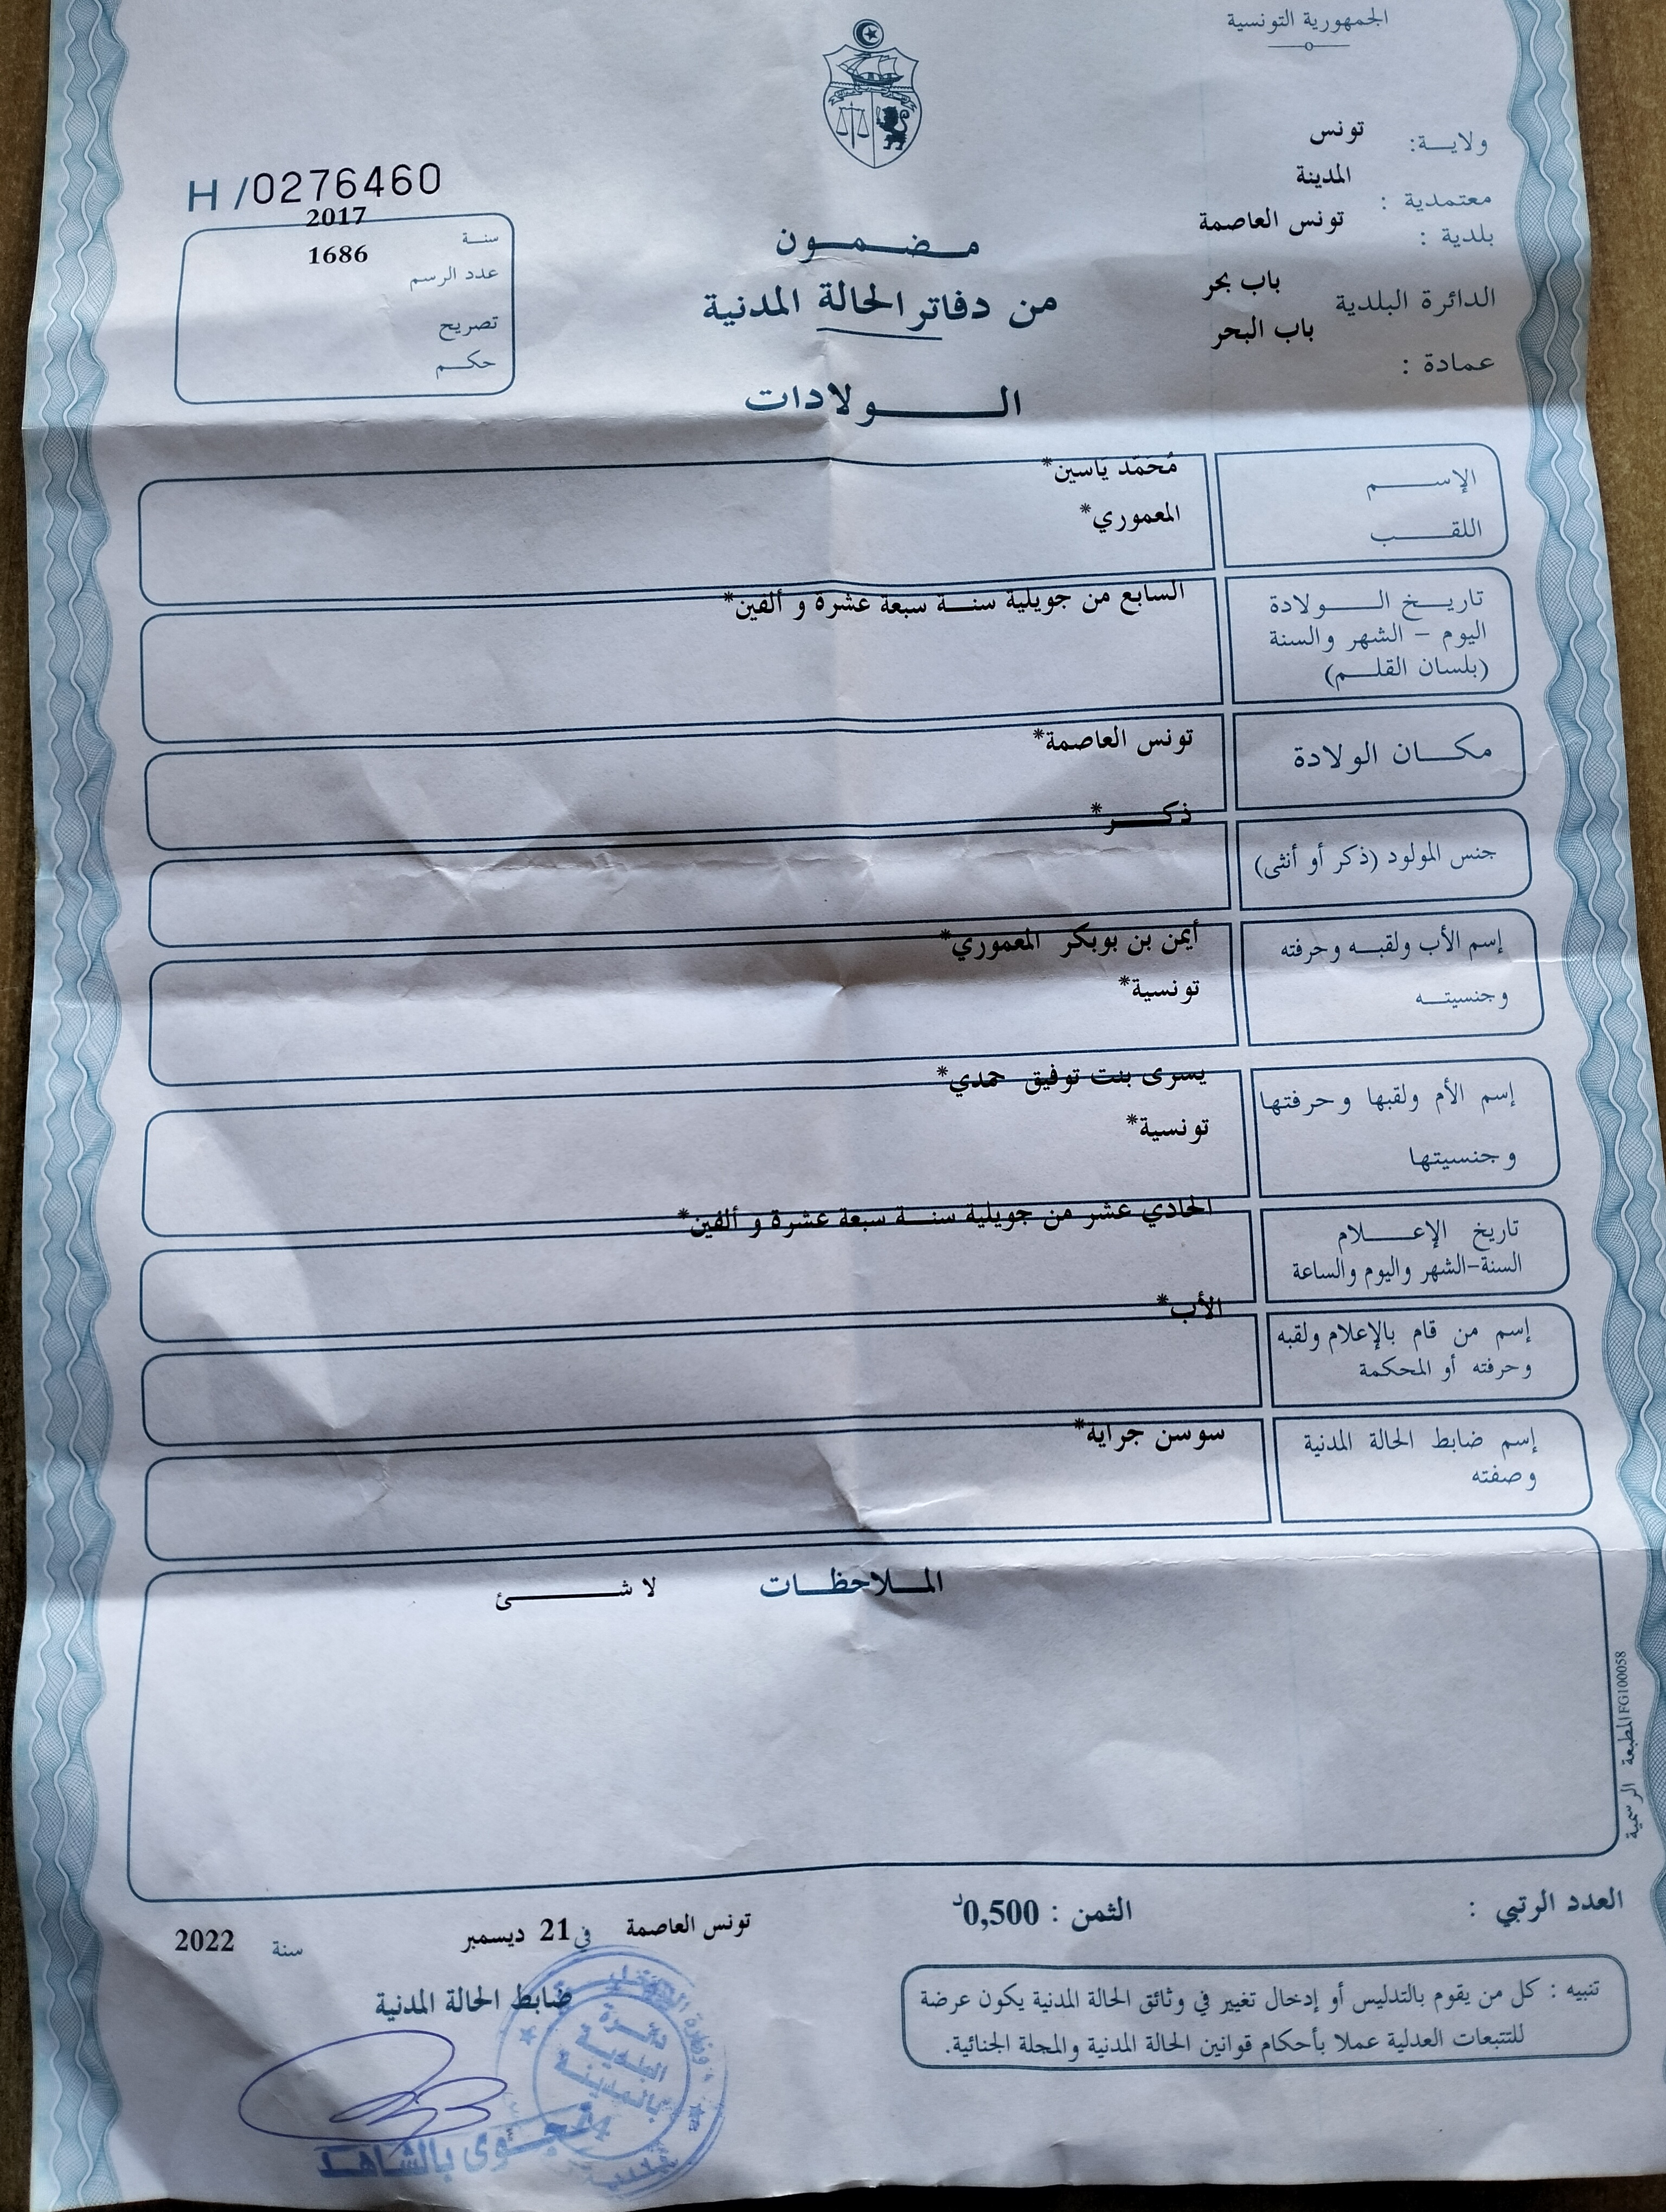 الجمهورية التونسية
ولاية: تونس
معتمدية : المدينة
بلدية : تونس العاصمة
الدائرة البلدية باب بحر
عمادة : باب البحر
H /0276460
سنة 2017
عدد الرسم 1686
تصريح
حكم
مضمون
من دفاتر الحالة المدنية
الولادات
الإسم مُحَمّد يَاسين*
اللقب المعموري*
تاريخ الولادة السابع من جويلية سنة سبعة عشرة و ألفين*
اليوم - الشهر والسنة
(بلسان القلم)
مكان الولادة تونس العاصمة*
جنس المولود (ذكر أو أنثى) ذكر*
إسم الأب ولقبه وحرفته أيمن بن بوبكر المعموري*
وجنسيته تونسية*
إسم الأم ولقبها وحرفتها يسرى بنت توفيق حمدي*
وجنسيتها تونسية*
تاريخ الإعلام الحادي عشر من جويلية سنة سبعة عشرة و ألفين*
السنة-الشهر واليوم والساعة
إسم من قام بالإعلام ولقبه الأب*
وحرفته أو المحكمة
إسم ضابط الحالة المدنية سوسن جراية*
وصفته
الملاحظات لا شئ
المطبعة الرسمية FG100058
العدد الرتبي :
الثمن : 0,500د
تونس العاصمة في 21 ديسمبر سنة 2022
ضابط الحالة المدنية
تنبيه : كل من يقوم بالتدليس أو إدخال تغيير في وثائق الحالة المدنية يكون عرضة
للتتبعات العدلية عملا بأحكام قوانين الحالة المدنية والمجلة الجنائية.
دائرة
البلدية
بالمدينة
نجوى بالشاهد